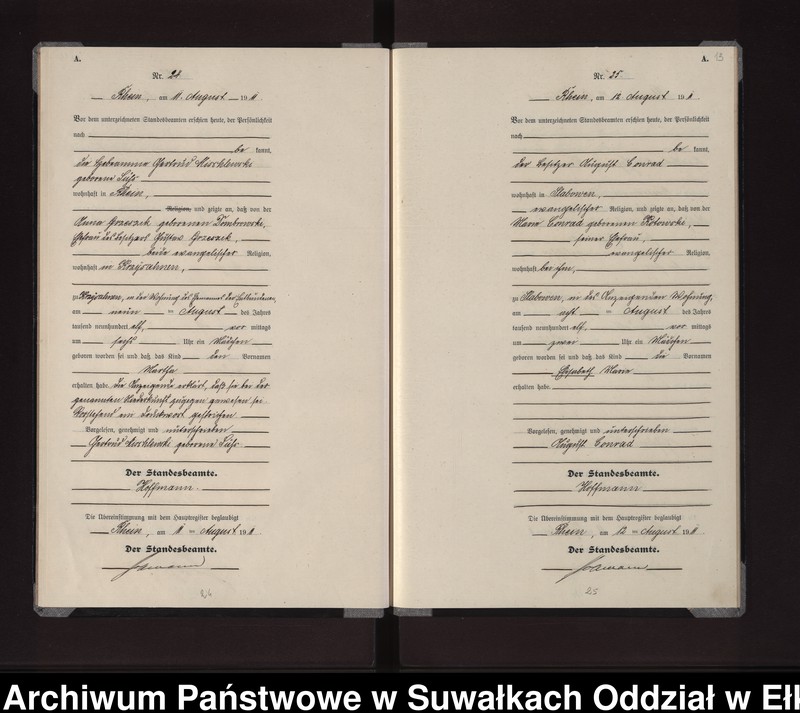 A.
Nr. 24
Rhein, am 11. August 1911.
Vor dem unterzeichneten Standesbeamten erschien heute, der Persönlichkeit
nach
be kannt,
die Hebeamme Gertrud
geborene
wohnhaft in Rhein,
Religion, und zeigte an, daß von der
Anna Grzeszek geborenen Dombrowski,
Ehefrau des Besitzers Gustav Grzeszek,
beide evangelischer Religion,
wohnhaft in
zu in der Wohnung des
am neun ten August des Jahres
tausend neunhundert elf, vor mittags
um sechs Uhr ein Mädchen
geboren worden sei und daß das Kind den Vornamen
Martha
erhalten habe. Die Anzeigende erklärt, daß sie bei der
genannten Niederkunft zugegen gewesen sei
Vorstehend ein Druckwort gestrichen
Vorgelesen, genehmigt und unterschrieben
Gertrud geborene
Der Standesbeamte.
Hoffmann.
Die Übereinstimmung mit dem Hauptregister beglaubigt
Rhein, am 11 ten August 1911.
Der Standesbeamte.
24
A. 13
Nr. 25.
Rhein, am 12. August 1911
Vor dem unterzeichneten Standesbeamten erschien heute, der Persönlichkeit
nach
be kannt,
der Besitzer August Conrad
wohnhaft in Slabowen,
evangelischer Religion, und zeigte an, daß von der
Marie Conrad geborenen Kotowski,
seiner Ehefrau,
evangelischer Religion,
wohnhaft bei ihm,
zu Slabowen, in des Anzeigenden Wohnung,
am acht ten August des Jahres
tausend neunhundert elf, vor mittags
um zwei Uhr ein Mädchen
geboren worden sei und daß das Kind die Vornamen
Elisabeth Marie
erhalten habe.
Vorgelesen, genehmigt und unterschrieben
August Conrad
Der Standesbeamte.
Hoffmann
Die Übereinstimmung mit dem Hauptregister beglaubigt
Rhein, am 12 ten August 1911
Der Standesbeamte.
25
Archiwum Państwowe w Suwałkach Oddział w Ełk